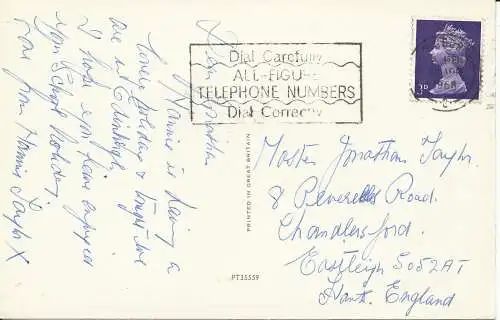 Dear Jonathan
Nannie is having a
lovely holiday & tonight we
are in Edinburgh,
I hope you have enjoyed
your School Holiday.
Love from Nannie Taylor X
Dial Carefully
ALL-FIGURE
TELEPHONE NUMBERS
Dial Correctly
3D
PRINTED IN GREAT BRITAIN
PT35559
Master Jonathan Taylor.
8 Road.
Chandlersford.
Eastleigh SO52AT
Hants. England